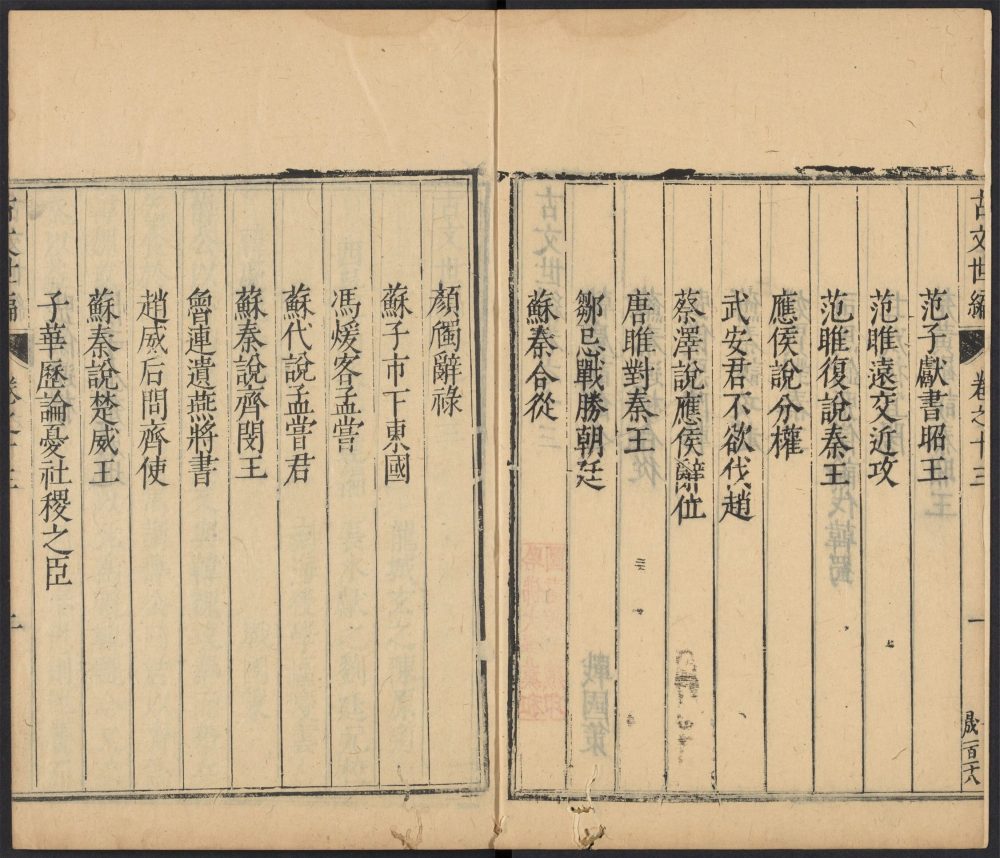 古文世編
卷之十三
一
晟一百六
范子獻書昭王
范睢遠交近攻
范睢復說秦王
應侯說分權
武安君不欲伐趙
蔡澤說應侯辭位
唐睢對秦王
鄒忌戰勝朝廷
蘇秦合從
顏斶辭祿
蘇子市下東國
馮煖客孟嘗
蘇代說孟嘗君
蘇秦說齊閔王
魯連遺燕將書
趙威后問齊使
蘇秦說楚威王
子華歷論憂社稷之臣